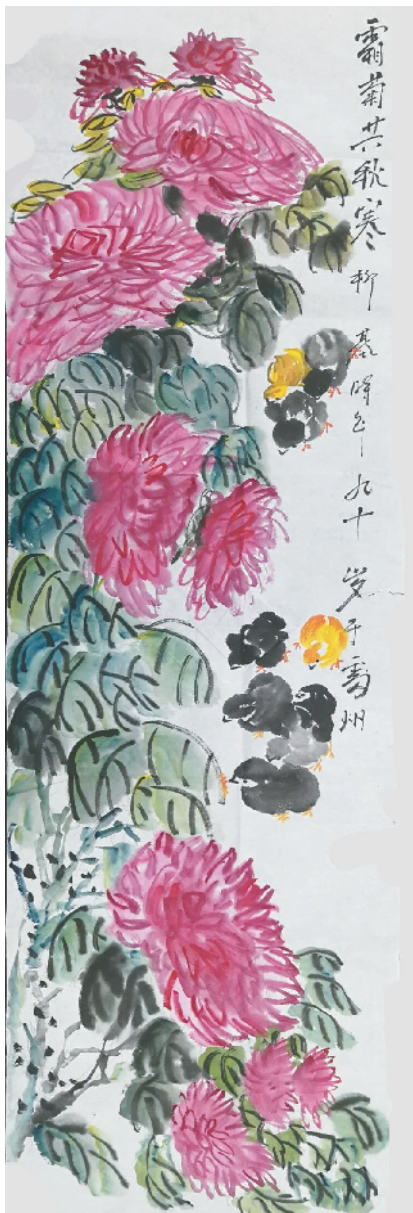 霜菊共秋寒 柳 時年九十岁于禹州